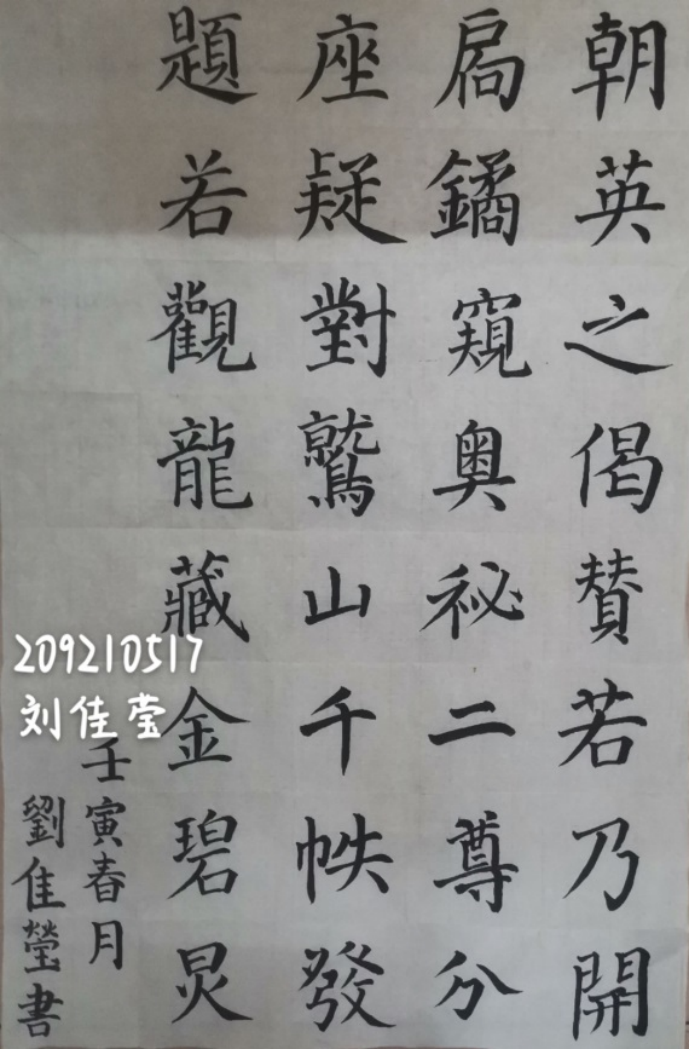 朝英之偈贊若乃開
扃鐍窺奥秘二尊分
座疑對鷲山千帙發
題若觀龍藏金碧炅
壬寅春月
劉佳瑩書
209210517
刘佳莹